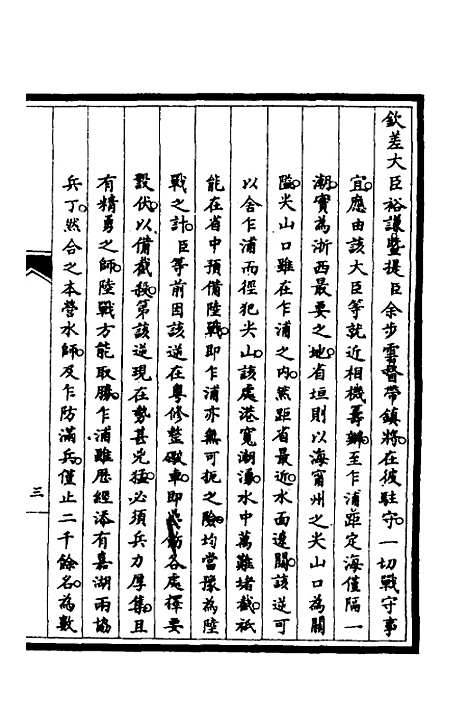 欽差大臣裕謙暨提臣余步雲督帶鎮將在彼駐守一切戰守事
宜應由該大臣等就近相機籌辦至乍浦距定海僅隔一
潮實為浙西最要之地省垣則以海甯州之尖山口為關
隘尖山口雖在乍浦之內然距省最近水面遼闊該逆可
以舍乍浦而徑犯尖山該處港寬潮湧水中萬難堵截祇
能在省中預備陸戰即乍浦亦無可扼之險均當豫為陸
戰之計臣等前因該逆在粵修整礮車即飭各處擇要
設伏以備截殺第該逆現在勢甚兇猛必須兵力厚集且
有精勇之師陸戰方能取勝乍浦雖歷經添有嘉湖兩協
兵丁然合之本營水師及乍防滿兵僅止二千餘名為數
三